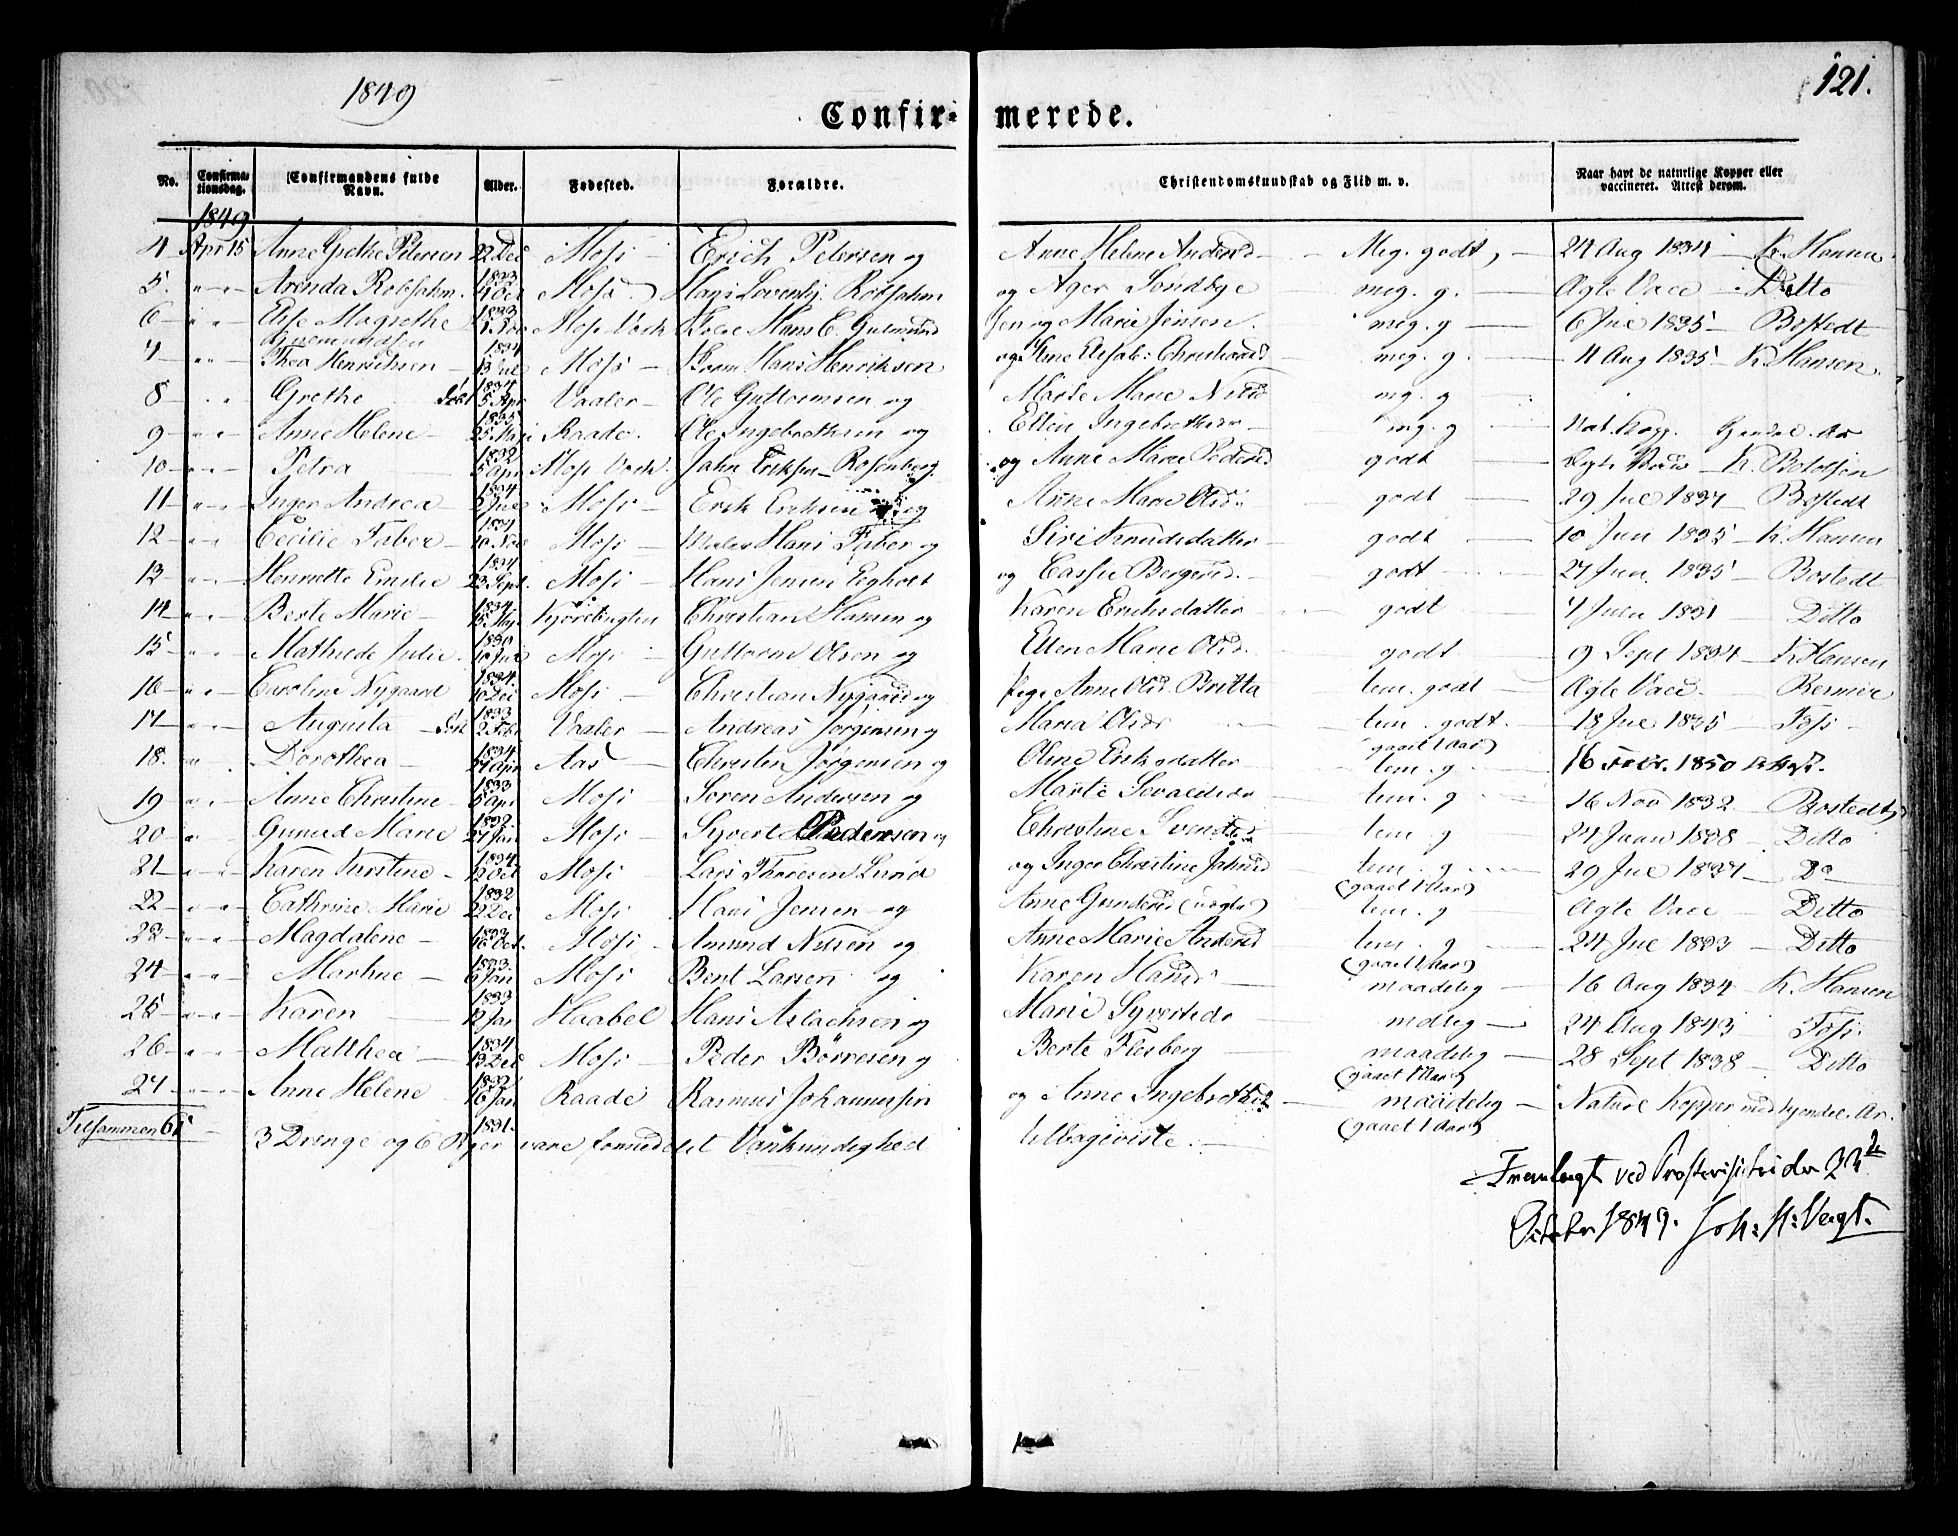 1849
121.
Confir- merede.
No. Confirmationsdag. Confirmandens fulde Navn. Alder. Fødested. Forældre. Christendomskundskab og Flid m. v. Naar havt de naturlige Kopper eller vaccineret. Attest derom.
1849
4 Apr 15 Anne Grethe Petersen 22 Dec 1833 Moss Erich Petersen og Anne Helene Andersd Meg. godt, 24 Aug 1834 K. Hansen
5. " " Arinda Robsahm. 4 Oct 1833 Moss Hans Lovenhj. Robsahm og Ager Sondbye meg. g. Ægte Vacc Ditto
6 " " Else Magrethe Moss Værk Hans E. Gulmund sen og Marie Jensen. meg. g 6 Jul 1835 Bostedt
7 " " Thea Henrichsen 13 Jul 1834 Moss Hans Henriksen og meg. g. 11 Aug 1835 K Hansen
8 " Grethe 5 Apr Vaaler Ole Guttormsen og Marte Marie Nilsd mg. g
9 " " Anne Helene Raade. Ole Ingebrethsen og Ellen Ingebrethsd mg. g Nat. Kopp.
10 " " Petra 5 Apr 1834 Moss Værk. Jahn Eriksen Rosenberg og Anne Marie Pedersd godt K. Bolessen
11 " " Inger Andrea Moss Erik Eriksen og Anne Marie Olsd. godt 29 Jul 1837 Bostedt
12 " " Cecilie Faber 10 Nov 1834 Moss Maler Hans Faber og Siri Knudsdatter godt 10 Jun 1835 K. Hansen
13 " " Henriette Emilie 23 Sept. 1834 Moss Hans Jensen Eegholt og Bergersd. godt 27 Jun. 1835 Bostedt
14 " " Berte Marie Christian Hansen og Karen Eriksdatter godt Ditto
15 " " Mathilde Julie. 10 Jul 1834 Moss Guttorm Olsen og Ellen Marie Olsd. godt 9 Sept 1834 K Hansen
16 " " Caroline Nygaard 10 Dec 1833 Moss Christian Nygaard og Anne Olsd. Britta tem. godt Ægte Vacc.
17 " " Augusta 2 Feb Vaaler Andreas Jørgensen og Maria Olsdr tem. godt. 18 Jul 1835 Foss
18. " Dorothea Aas Christen Jørgensen og Oline Eriksdatter tem. g (gaaet 1 Aar) 16 Febr. 1850
19 " " Anne Christine 5 Apr 1832 Moss Soren Andersen og Marte Sevaldsdr tem. g 16 Nov 1832. Bostedt
20 " Gunild Marie 27 Jan 1834 Moss Syvert Pedersen og Christine Svendsd tem. g 24 Juni 1838 Ditto
21 " " Karen Kirstine 12 Oct 1832 Moss Lars Thoresen Lunde og Inger Christine Jahnsd tem. g (gaaet 1 Aar) 29 Jul 1837 Do
22 " " Cathrine Marie 22 Dec 1833 Moss Hans Jensen og Anne Gundersd (uægte) tem. g Ægte Vacc Ditto
23 " " Magdalene 16 Oct. 1833 Moss Amund Nilsen og Anne Marie Andersd tem. g (gaaet 1 Aar) 24 Jul 1833 Ditto
24 " " Martine 6 Jan 1833 Moss Bent Larsen og Karen Hansd maadelig 16 Aug 1834 K. Hansen
25 " " Karen 12 Jan 1834 Haabel Hans Aslachsen og Marie Syvertsdr mdlig 24 Aug 1843 Foss.
26 " " Matthea 13 Dec 1832 Moss Peder Börresen og Berte Flesberg maadelig (gaaet 1 Aar) 28 Sept 1838 Ditto
27 " " Anne Helene 16 Jan 1831. Raade Rasmus Johannessen og Anne Ingebrethsd maadelig (gaaet 1 Aar) Naturl Kopper med kjendel. Ar.
Tilsammen 61
3 Drenge og 6 Piger vare formedelst Vankundighed tilbageviste.
Fremlagt ved Prostevisitsi den 23de
October 1849. Joh: H: Vogt.